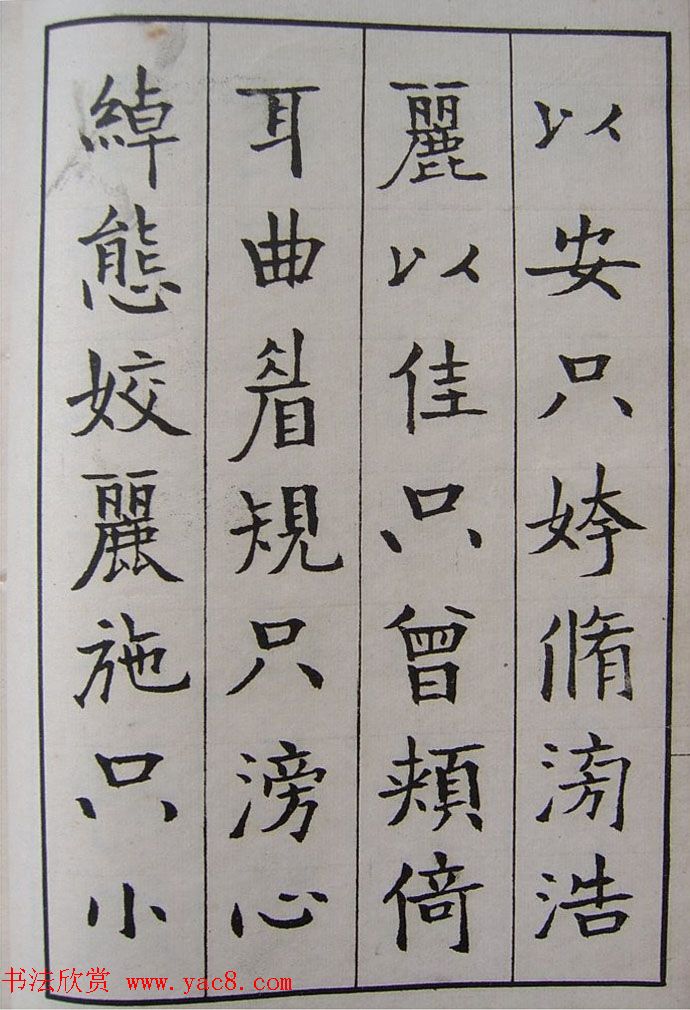 以安只姱脩滂浩
麗以佳只曾頰倚
耳曲眉規只滂心
綽態姣麗施只小
书法欣赏 www.yac8.com